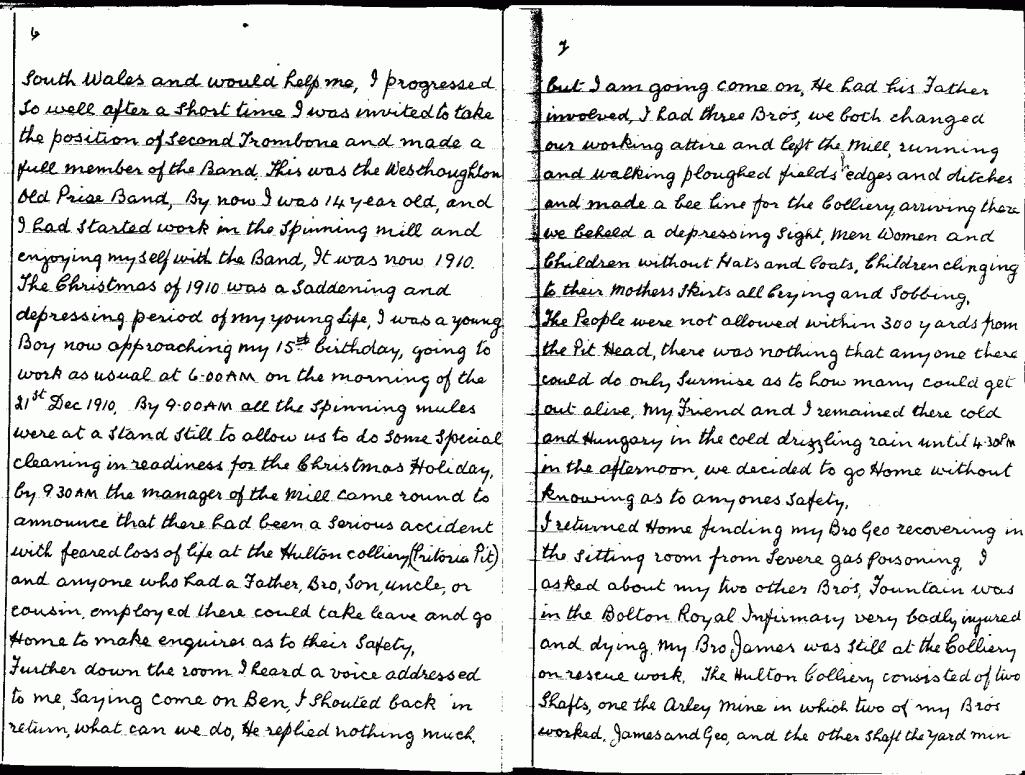 6
South Wales and would help me, I progressed
So well after a short time I was invited to take
the position of Second Trombone and made a
full member of the Band, This was the Westhoughton
Old Prise Band, By now I was 14 year old, and
I had started work in the Spinning mill and
enjoying myself with the Band, It was now 1910.
The Christmas of 1910 was a Saddening and
depressing period of my young Life, I was a young
Boy now approaching my 15th birthday, going to
work as usual at 6.00 AM on the morning of the
21st Dec 1910, By 9.00 AM all the Spinning mules
were at a Stand Still to allow us to do Some Special
cleaning in readiness for the Christmas Holiday,
by 9 30 AM the manager of the Mill came round to
announce that there had been a Serious accident
with feared loss of life at the Hulton colliery (Pritoria Pit)
and anyone who had a Father, Bro, Son, uncle, or
cousin, employed there could take leave and go
Home to make enquires as to their Safety,
Further down the room I heard a voice addressed
to me, Saying come on Ben, I Shouted back in
return, what can we do, He replied nothing much,
7
but I am going come on, He had his Father
involved, I had three Bro's, we both changed
our working attire and left the Mill, running
and walking ploughed fields edges and ditches
and made a bee line for the Colliery arriving there
we beheld a depressing Sight, Men Women and
Children without Hats and Coats, Children clinging
to their Mothers Skirts all Crying and Sobbing,
The People were not allowed within 300 yards from
the Pit Head, there was nothing that anyone there
could do only Surmise as to how many could get
out alive, My Friend and I remained there cold
and Hungary in the cold drizzling rain until 4.30 PM
in the afternoon, we decided to go Home without
Knowing as to anyones Safety,
I returned Home finding my Bro Geo recovering in
the Sitting room from Severe gas Poisoning, I
asked about my two other Bro's, Fountain was
in the Bolton Royal Infirmary very badly injured
and dying, My Bro James was Still at the Colliery
on rescue work, The Hulton Colliery consisted of two
Shafts, one the Arley Mine in which two of my Bros
worked, James and Geo, and the other Shaft the Yard min